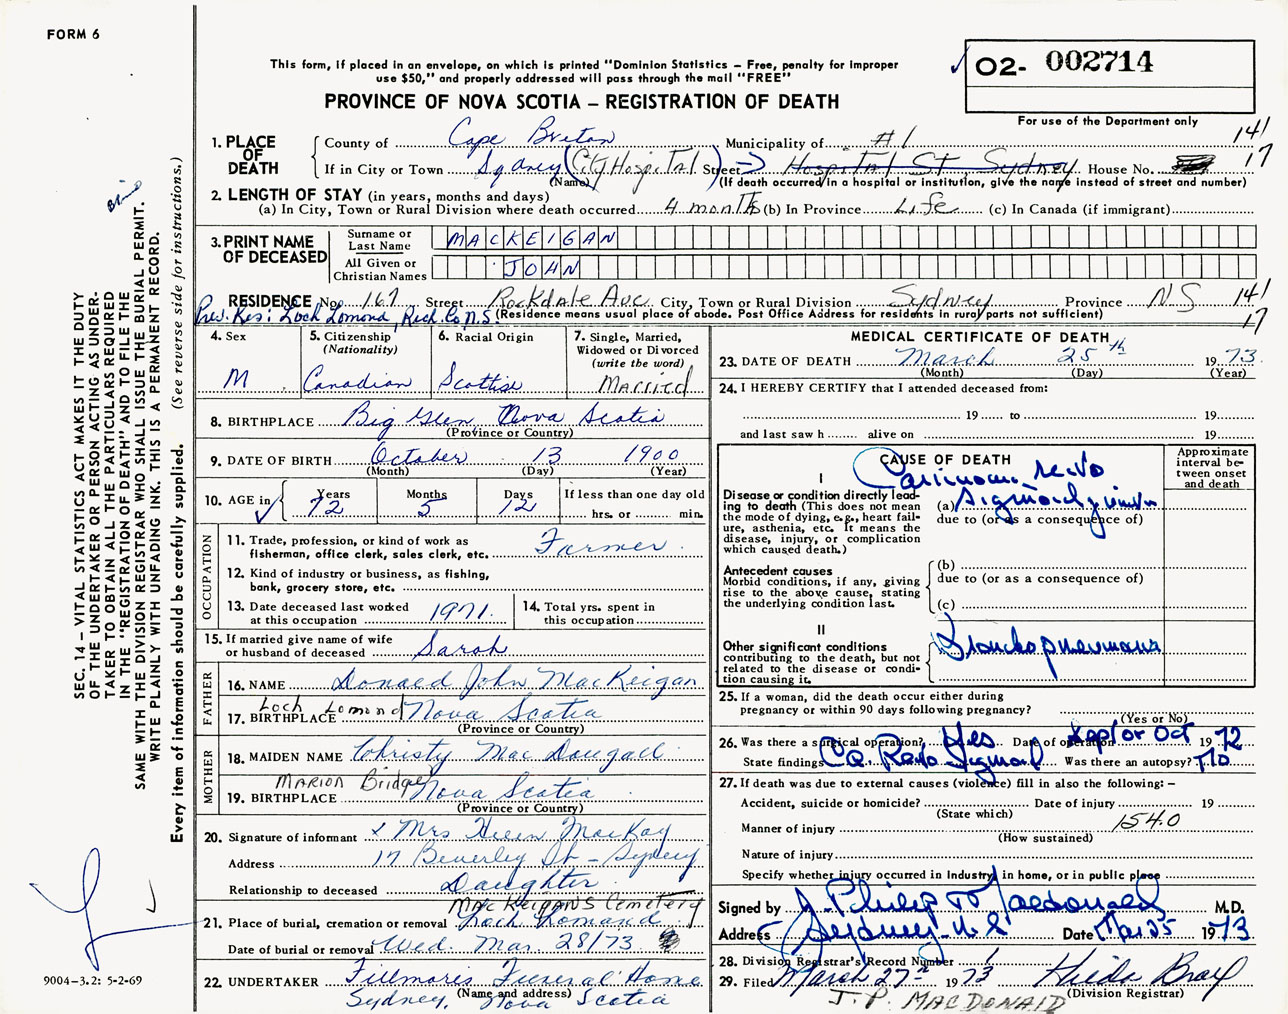 FORM 6
This form, if placed in an envelope, on which is printed "Dominion Statistics – Free, penalty for improper
use $50," and properly addressed will pass through the mail "FREE"
PROVINCE OF NOVA SCOTIA – REGISTRATION OF DEATH
02- 002714
For use of the Department only
141
17
1. PLACE OF DEATH
County of Cape Breton Municipality of #1
If in City or Town Sydney (City Hospital) Street Hospital St Sydney House No.
(Name) (If death occurred in a hospital or institution, give the name instead of street and number)
2. LENGTH OF STAY (in years, months and days)
(a) In City, Town or Rural Division where death occurred 4 months (b) In Province Life (c) In Canada (if immigrant)
3. PRINT NAME OF DECEASED
Surname or Last Name MACKEIGAN
All Given or Christian Names JOHN
RESIDENCE No. 167 Street Rockdale Ave City, Town or Rural Division Sydney Province NS 141
17
Prev. Res: Loch Lomond, Rich. Co N.S. (Residence means usual place of abode. Post Office Address for residents in rural parts not sufficient)
4. Sex M
5. Citizenship (Nationality) Canadian
6. Racial Origin Scottish
7. Single, Married, Widowed or Divorced (write the word) MARRIED
8. BIRTHPLACE Big Glen Nova Scotia
(Province or Country)
9. DATE OF BIRTH October 13 1900
(Month) (Day) (Year)
10. AGE in Years 72 Months 5 Days 12 If less than one day old
hrs. or min.
OCCUPATION
11. Trade, profession, or kind of work as
fisherman, office clerk, sales clerk, etc. Farmer
12. Kind of industry or business, as fishing,
bank, grocery store, etc.
13. Date deceased last worked at this occupation 1971.
14. Total yrs. spent in this occupation
15. If married give name of wife
or husband of deceased Sarah
FATHER
16. NAME Donald John MacKeigan
17. BIRTHPLACE Loch Lomond Nova Scotia
(Province or Country)
MOTHER
18. MAIDEN NAME Christy MacDougall
19. BIRTHPLACE MARION Bridge Nova Scotia
(Province or Country)
20. Signature of informant x Mrs Helen MacKay
Address 17 Beverley St – Sydney
Relationship to deceased Daughter
MacKeigan's Cemetery
21. Place of burial, cremation or removal Loch Lomond
Date of burial or removal Wed. Mar. 28/73
22. UNDERTAKER Fillmores Funeral Home
(Name and address)
Sydney, Nova Scotia
MEDICAL CERTIFICATE OF DEATH
23. DATE OF DEATH March 25th 1973.
(Month) (Day) (Year)
24. I HEREBY CERTIFY that I attended deceased from:
19 to 19
and last saw h alive on 19
CAUSE OF DEATH
Approximate interval between onset and death
I
Disease or condition directly lead-
ing to death (This does not
mean the mode of dying, e.g., heart fail-
ure, asthenia, etc. It means the
disease, injury, or complication
which caused death.)
Carcinoma recto
(a) Sigmoid
due to (or as a consequence of)
Antecedent causes
Morbid conditions, if any, giving
rise to the above cause, stating
the underlying condition last.
(b)
due to (or as a consequence of)
(c)
II
Other significant conditions
contributing to the death, but not
related to the disease or condi-
tion causing it.
Bronchopneumonia
25. If a woman, did the death occur either during
pregnancy or within 90 days following pregnancy?
(Yes or No)
26. Was there a surgical operation? Yes Date of operation Sept or Oct 1972
State findings Ca Recto Sigmoid Was there an autopsy? No
27. If death was due to external causes (violence) fill in also the following: –
Accident, suicide or homicide? Date of injury 19
(State which)
Manner of injury 1540
(How sustained)
Nature of injury
Specify whether injury occurred in Industry, in home, or in public place
Signed by J. Philip Macdonald M.D.
Address Sydney N.S Date Mar 25 1973
28. Division Registrar's Record Number
29. Filed March 27th 1973 Hilda Bray
(Division Registrar)
J.P. MACDONALD
SEC. 14 – VITAL STATISTICS ACT MAKES IT THE DUTY
OF THE UNDERTAKER OR PERSON ACTING AS UNDER-
TAKER TO OBTAIN ALL THE PARTICULARS REQUIRED
IN THE "REGISTRATION OF DEATH" AND TO FILE THE
SAME WITH THE DIVISION REGISTRAR WHO SHALL ISSUE THE BURIAL PERMIT.
WRITE PLAINLY WITH UNFADING INK. THIS IS A PERMANENT RECORD.
Every item of information should be carefully supplied. (See reverse side for instructions.)
9004-3.2: 5-2-69